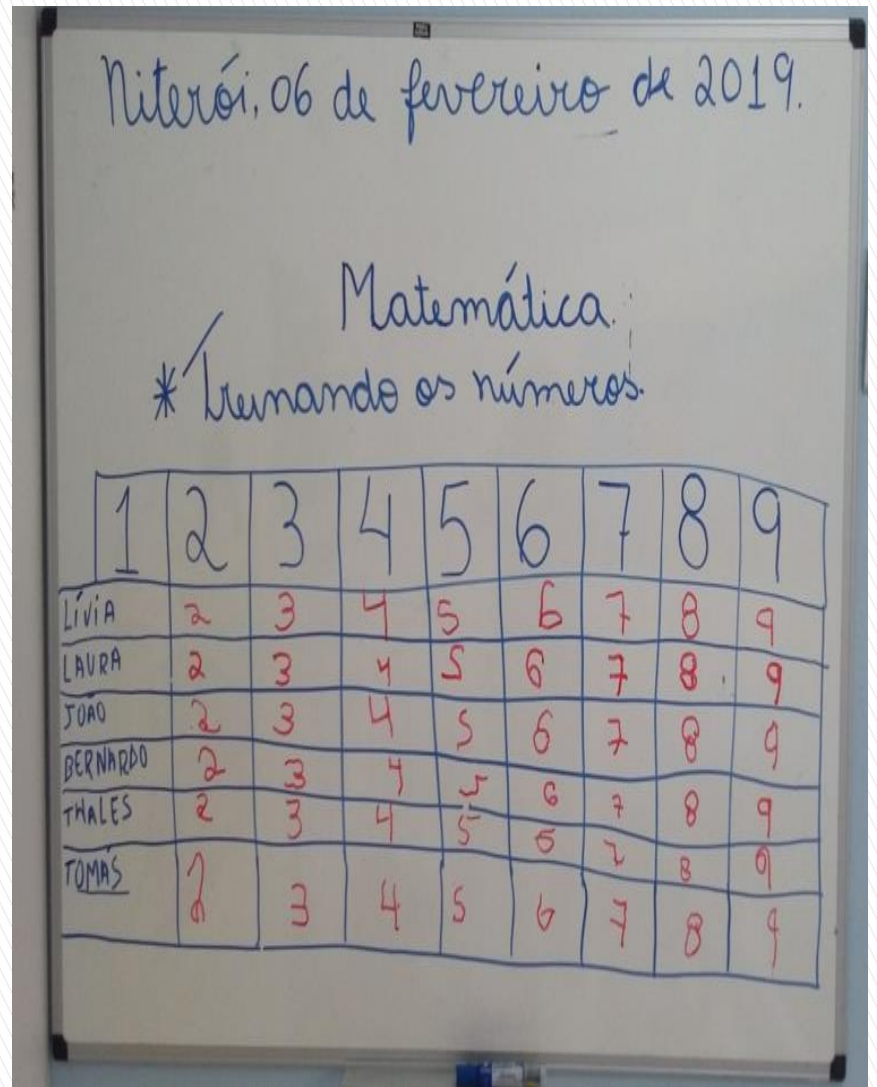 Niterói, 06 de fevereiro de 2019.
Matemática.
* Treinando os números.
1 2 3 4 5 6 7 8 9
LÍVIA 2 3 4 5 6 7 8 9
LAURA 2 3 4 5 6 7 8 9
JOÃO 2 3 4 5 6 7 8 9
BERNARDO 2 3 4 5 6 7 8 9
THALES 2 3 4 5 6 7 8 9
TOMÁS 2 3 4 5 6 7 8 9